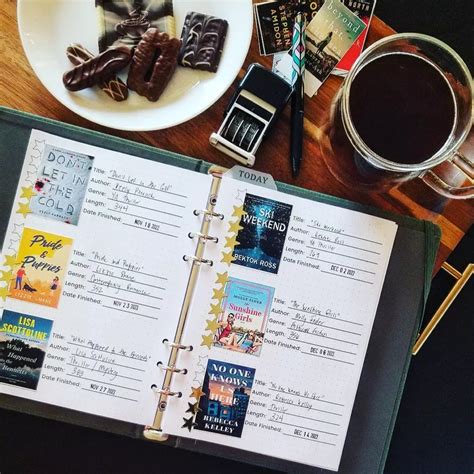 STEPHEN
AMIDON
beyond
TODAY
DON'T
LET IN
THE
COLD
Title: "Don't Let in the Cold"
Author:
Genre: YA Thriller
Length:
Date Finished: NOV 18 2022
Pride &
Puppies
LIZZIE SHANE
Title: "Pride and Puppies"
Author: Lizzie Shane
Genre: Contemporary Romance
Length:
Date Finished: NOV 23 2022
LISA
SCOTTOLINE
What
Happened
to the
Bennetts
Title: "What Happened to the Bennetts"
Author: Lisa Scottoline
Genre: Thriller / Mystery
Length:
Date Finished: NOV 27 2022
SKI
WEEKEND
REKTOK ROSS
Title: "Ski Weekend"
Author: Rektok Ross
Genre: YA Thriller
Length:
Date Finished: DEC 02 2022
Sunshine
Girls
Title: "The Sunshine Girls"
Author: Molly Fader
Genre: Historical Fiction
Length:
Date Finished: DEC 08 2022
NO ONE
KNOWS
US
HERE
REBECCA
KELLEY
Title: "No One Knows Us Here"
Author: Rebecca Kelley
Genre: Thriller
Length:
Date Finished: DEC 14 2022